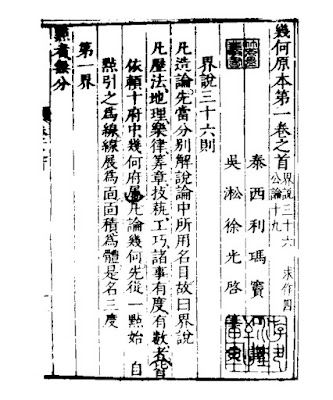 幾何原本第一卷之首 界說三十六 求作四
公論十九
泰西利瑪竇
吳淞徐光啓
界說三十六則
凡造論先當分別解說論中所用名目故曰界說
凡曆法地理樂律算章技藝工巧諸事有度有數者皆
依賴十府中幾何府屬凡論幾何先從一點始自
點引之爲線線展爲面面積爲體是名三度
第一界
點者無分